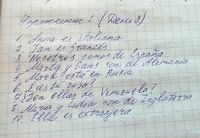 Упражнение 1 (День 3)
1. Anna es italiana
2. Jan es francés
3. Nosotros somos de España
4. Marta y Hans son de Alemania
5. Mark está en Rusia
6. Eres ruso?
7. Son ellos de Venezuela?
8. María y Lidia son de Inglaterra
10. Ella es extranjera